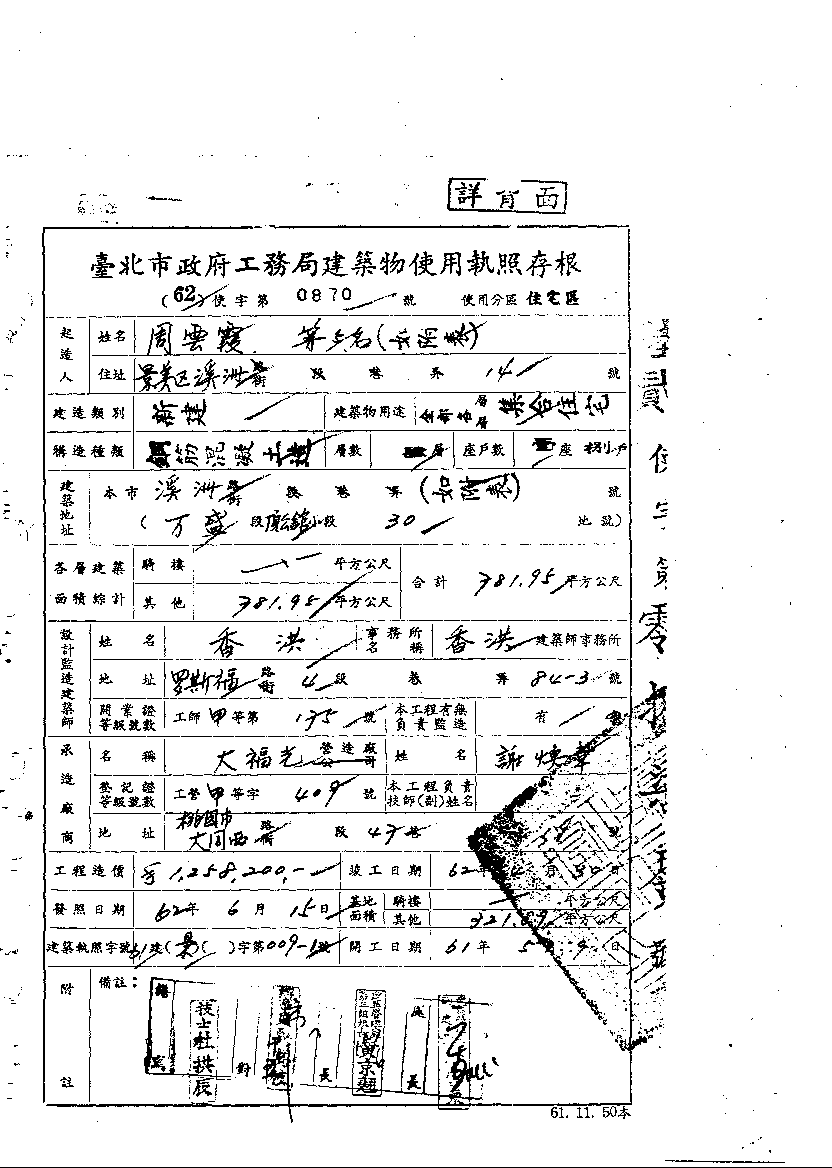 詳背面
臺北市政府工務局建築物使用執照存根
(62)使字第 0870 號 使用分區 住宅區
起造人 姓名 周雲霞 等 名(如附表)
住址 景美区溪洲街 段 巷 弄 14 號
建造類別 新建 建築物用途 全部各層 集合住宅
構造種類 鋼筋混凝土造 層數 層 座戶數 座 捌戶
建築地址 本市 溪洲街 段 巷 弄 (如附表) 號
(万盛 段 小段 30 地號)
各層建築面積綜計 騎樓 平方公尺 合計 781.95 平方公尺
其他 781.95 平方公尺
設計監造建築師 姓名 香洪 事務所名稱 香洪 建築師事務所
地址 罗斯福路 4 段 巷 弄 84-3 號
開業證等級號數 工師 甲 等第 135 號 本工程有無負責監造 有
承造廠商 名稱 大福光 營造廠 姓名 謝煥章
登記證等級號數 工營 甲 等字 409 號 本工程負責技師(副)姓名
地址 桃園市大同西路 段 47巷 號
工程造價 1,258,200,- 竣工日期 62年 月 30日
發照日期 62年 6月 15日 基地面積 騎樓 平方公尺
其他 平方公尺
建築執照字號 61建(景)( )字第009-1號 開工日期 61年 5 9日
附註 備註:
技士杜拱辰
對
長
黃京翹
長
61.11.50本
貳
使
字
第
零